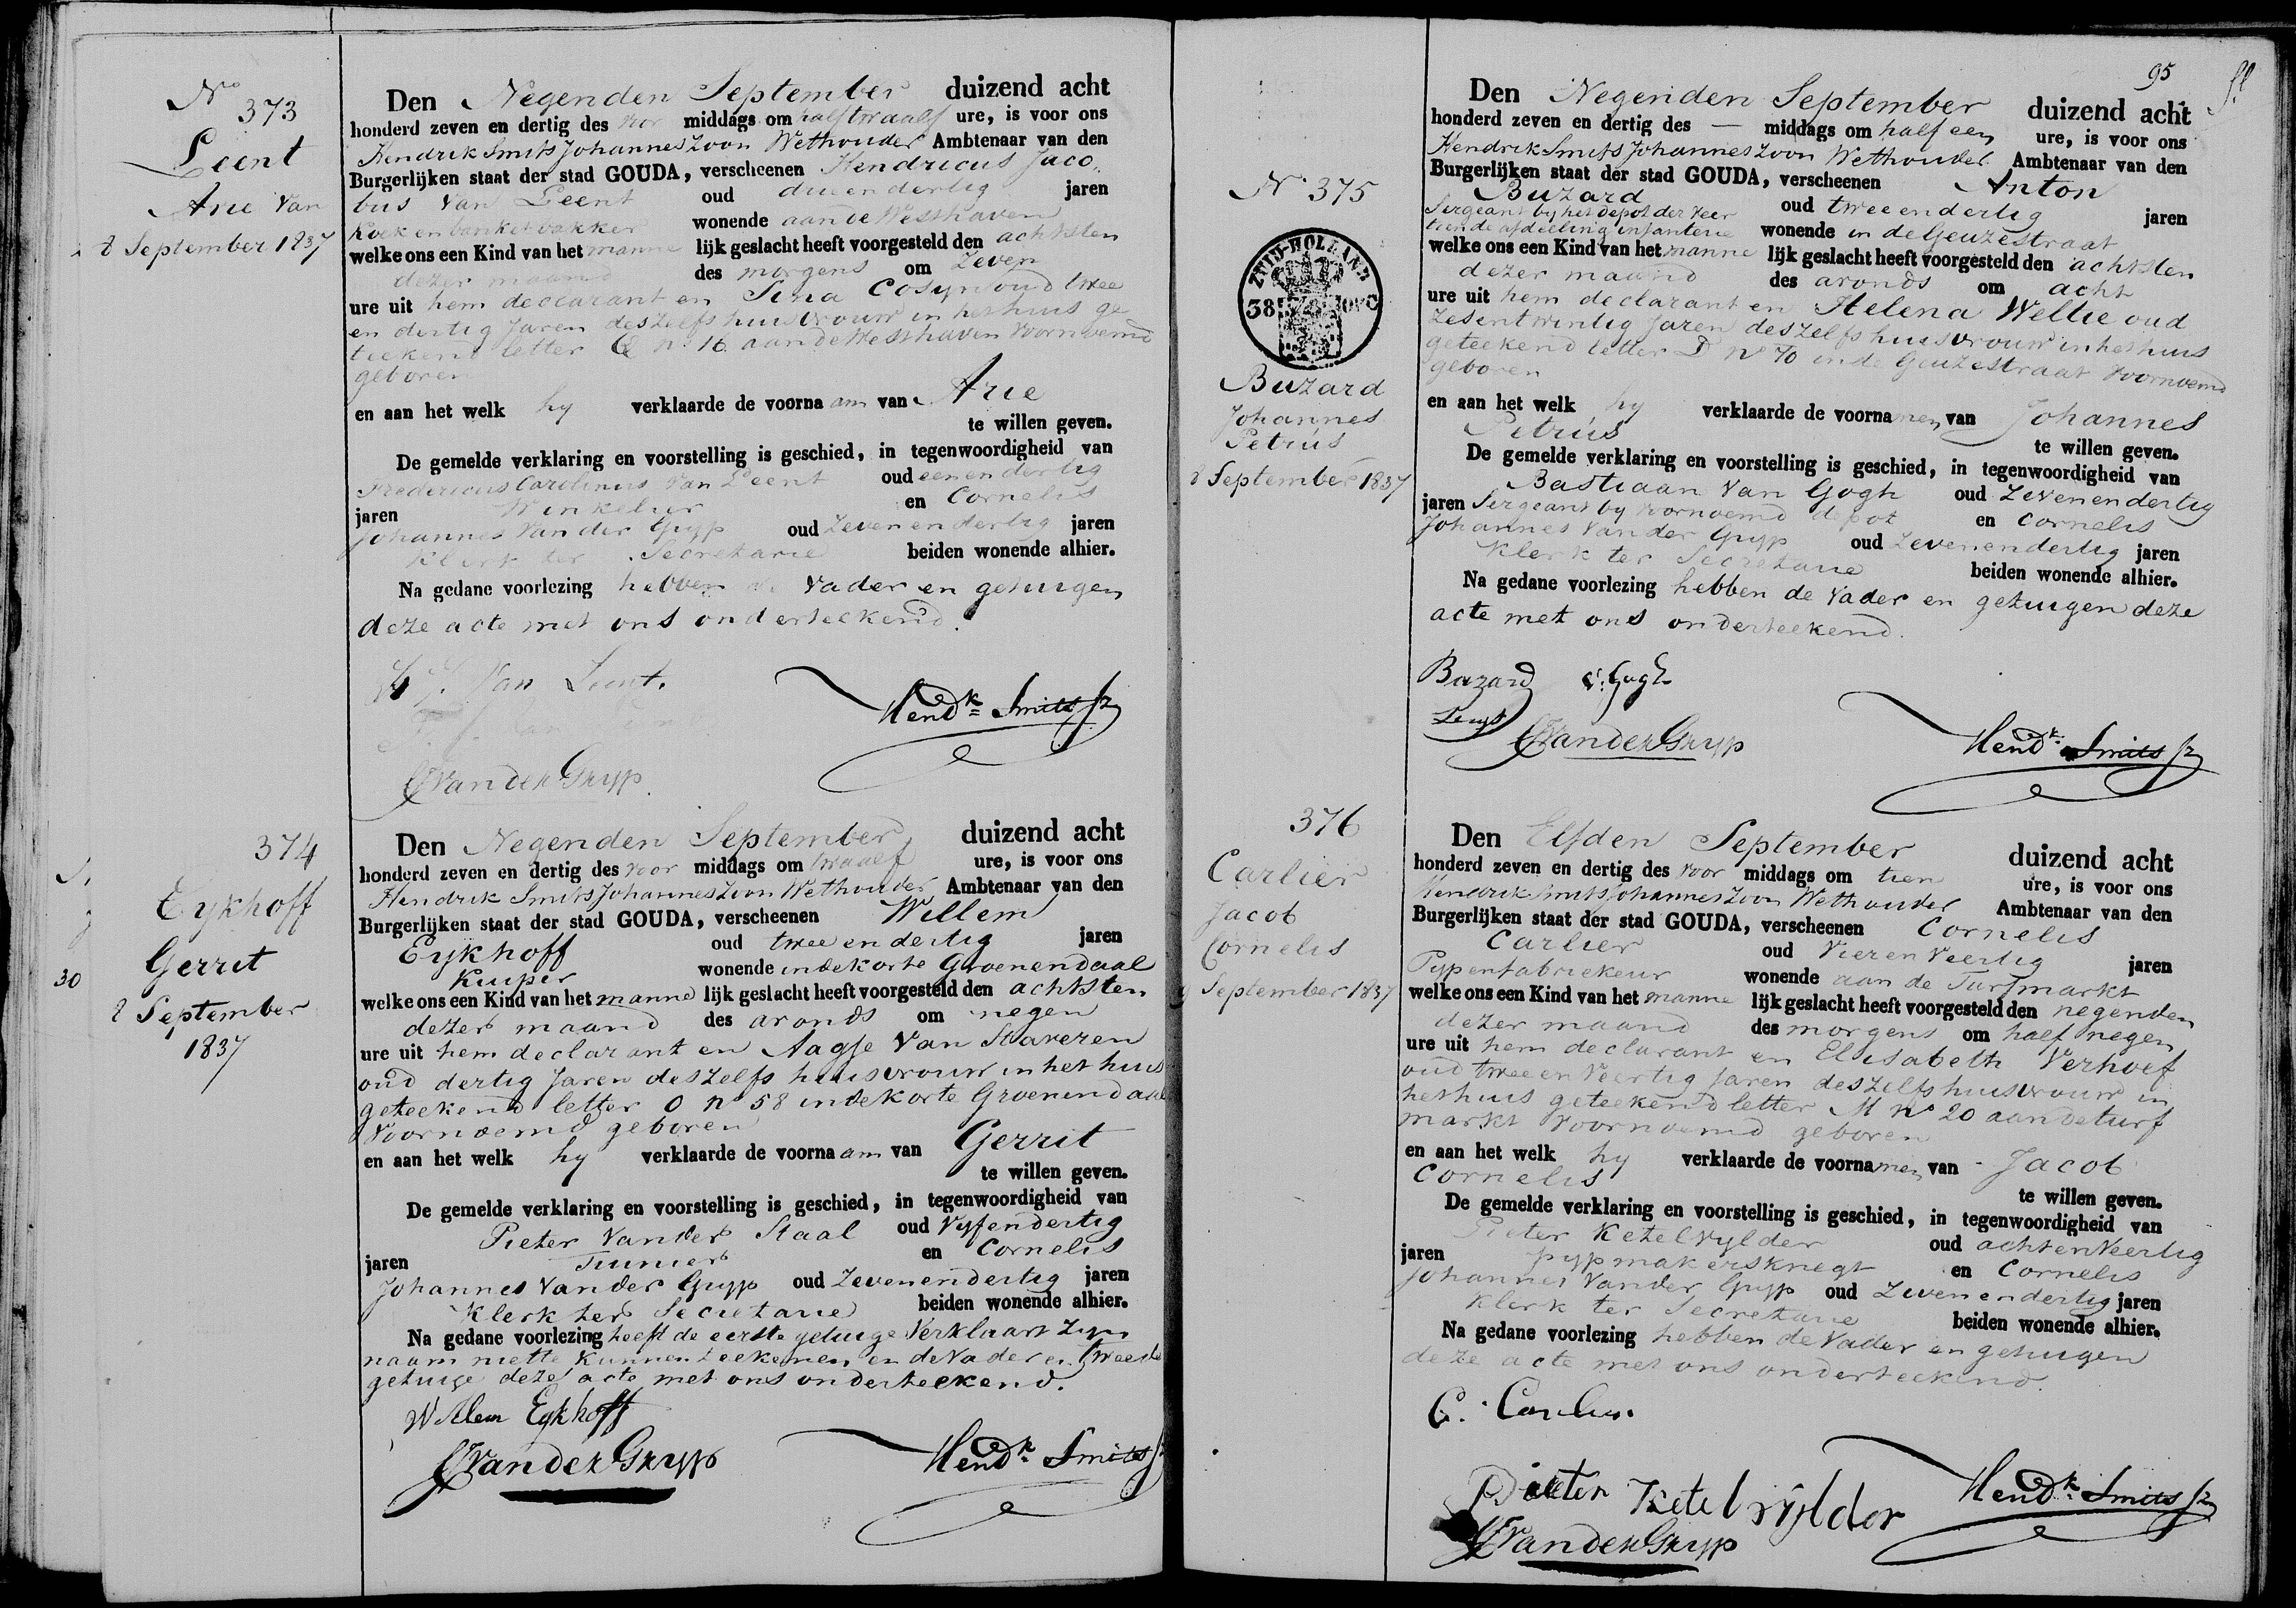 No 373
Leent
Arie Van
8 September 1837
Den Negenden September duizend acht
honderd zeven en dertig des voor middags om half twaalf ure, is voor ons
Hendrik Smits Johannes Zoon Wethouder Ambtenaar van den
Burgerlijken staat der stad GOUDA, verscheenen Hendricus Jaco-
bus Van Leent oud drie en dertig jaren
Koek en banket bakker wonende aan de Westhaven
welke ons een Kind van het manne lijk geslacht heeft voorgesteld den achtsten
dezer maand des morgens om Zeven
ure uit hem declarant en Sina Cosyn oud twee
en dertig Jaren deszelfs huisvrouw in het huis ge
teekend letter No 16 aan de Westhaven Voornoemd
geboren
en aan het welk hy verklaarde de voorna am van Arie
te willen geven.
De gemelde verklaring en voorstelling is geschied, in tegenwoordigheid van
Fredericus Carolinus Van Leent oud een en dertig
jaren Winkelier en Cornelis
Johannes Van der Gryp oud Zeven en dertig jaren
Klerk ter Secretarie beiden wonende alhier.
Na gedane voorlezing hebben de Vader en getuigen
deze acte met ons onderteekend.
H J. Van Leent.
Hendk Smits Jz
CJVan der Gryp
374
Eykhoff
Gerrit
8 September
1837
30
Den Negenden September duizend acht
honderd zeven en dertig des voor middags om twaalf ure, is voor ons
Hendrik Smits Johannes Zoon Wethouder Ambtenaar van den
Burgerlijken staat der stad GOUDA, verscheenen Willem
Eykhoff oud twee en dertig jaren
Kuiper wonende in de korte Groenendaal
welke ons een Kind van het manne lijk geslacht heeft voorgesteld den achtsten
dezer maand des avonds om negen
ure uit hem declarant en Aagje Van Staveren
oud dertig Jaren deszelfs huisvrouw in het huis
geteekend letter O No 58 in de Korte Groenendaal
Voornoemd geboren
en aan het welk hy verklaarde de voorna am van Gerrit
te willen geven.
De gemelde verklaring en voorstelling is geschied, in tegenwoordigheid van
Pieter Van der Staal oud Vyf en dertig
jaren Tuinier en Cornelis
Johannes Van der Gryp oud Zeven en dertig jaren
Klerk ter Secretarie beiden wonende alhier.
Na gedane voorlezing heeft de eerste getuige Verklaart Zyn
naam niet te Kunnen teekenen en de Vader en tweede
getuige deze acte met ons onderteekend.
Willem Eykhoff
CJVan der Gryp
Hendk Smits Jz
95
No 375
ZUID-HOLLAND
38
Buzard
Johannes
Petrus
8 September 1837
Den Negenden September duizend acht
honderd zeven en dertig des — middags om half een ure, is voor ons
Hendrik Smits Johannes Zoon Wethouder Ambtenaar van den
Burgerlijken staat der stad GOUDA, verscheenen Anton
Buzard oud twee en dertig jaren
Sergeant by het depot der Veer
tiende afdeeling infanterie wonende in de Geuzestraat
welke ons een Kind van het manne lijk geslacht heeft voorgesteld den achtsten
dezer maand des avonds om acht
ure uit hem declarant en Helena Wellie oud
Zes en twintig Jaren deszelfs huisvrouw in het huis
geteekend letter D No 70 in de Geuzestraat Voornoemd
geboren
en aan het welk hy verklaarde de voorna men van Johannes
Petrus te willen geven.
De gemelde verklaring en voorstelling is geschied, in tegenwoordigheid van
Bastiaan Van Gogh oud Zeven en dertig
jaren Sergeant by Voornoemd depot en Cornelis
Johannes Van der Gryp oud Zeven en dertig jaren
Klerk ter Secretarie beiden wonende alhier.
Na gedane voorlezing hebben de Vader en getuigen deze
acte met ons onderteekend.
Buzard
V. Gogh
CJVan der Gryp
Hendk Smits Jz
376
Carlier
Jacob
Cornelis
9 September 1837
Den Elfden September duizend acht
honderd zeven en dertig des voor middags om tien ure, is voor ons
Hendrik Smits Johannes Zoon Wethouder Ambtenaar van den
Burgerlijken staat der stad GOUDA, verscheenen Cornelis
Carlier oud Vier en Veertig jaren
Pypenfabriekeur wonende aan de Turfmarkt
welke ons een Kind van het manne lijk geslacht heeft voorgesteld den negenden
dezer maand des morgens om half negen
ure uit hem declarant en Elisabeth Verhoef
oud twee en Veertig Jaren deszelfs huisvrouw in
het huis geteekend letter M No 20 aan de turf
markt Voornoemd geboren
en aan het welk hy verklaarde de voorna men van Jacob
Cornelis te willen geven.
De gemelde verklaring en voorstelling is geschied, in tegenwoordigheid van
Pieter Ketelvylder oud acht en Veertig
jaren Pypmakersknegt en Cornelis
Johannes Van der Gryp oud Zeven en dertig jaren
Klerk ter Secretarie beiden wonende alhier.
Na gedane voorlezing hebben de Vader en getuigen
deze acte met ons onderteekend.
C. Carlier
Pieter Ketelvijlder
CJVan der Gryp
Hendk Smits Jz